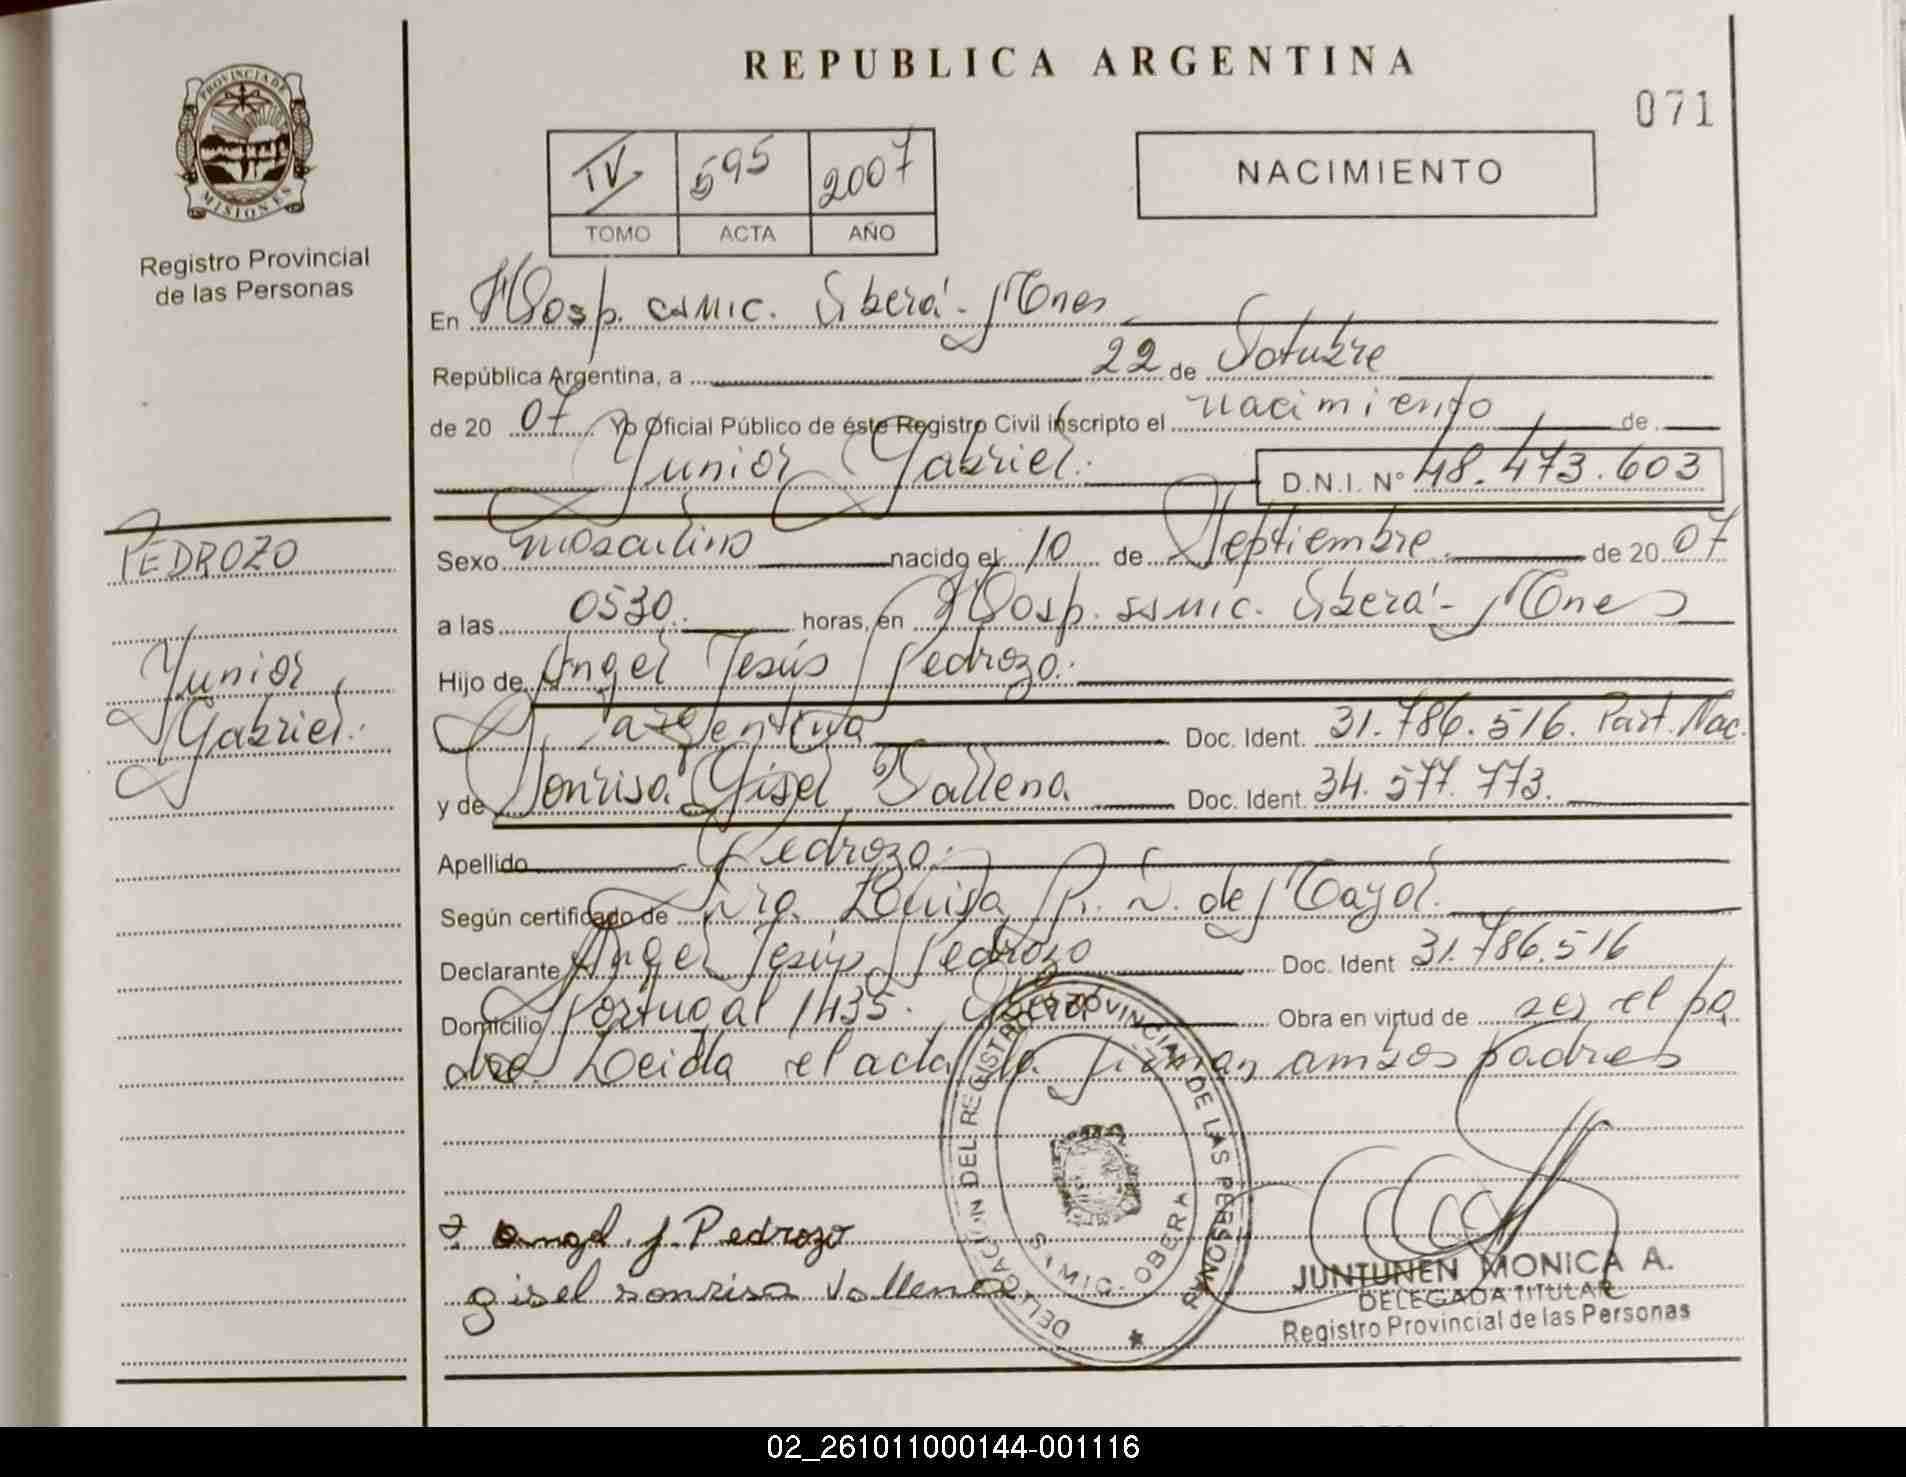 REPUBLICA ARGENTINA
071
PROVINCIA DE
MISIONES
Registro Provincial
de las Personas
IV 595 2007
TOMO ACTA AÑO
NACIMIENTO
En Hosp. SAMIC. Oberá - Mnes
República Argentina, a 22 de Octubre
de 20 07 Yo Oficial Público de éste Registro Civil inscripto el nacimiento de
Yunior Gabriel. D.N.I. Nº 48.473.603
PEDROZO
Yunior
Gabriel.
Sexo masculino nacido el 10 de Septiembre de 20 07
a las 0530. horas, en Hosp. SAMIC. Oberá - Mnes
Hijo de Angel Jesús Pedrozo.
argentina Doc. Ident. 31.786.516. Part. Nac.
y de Sonrisa Gisel Vallena Doc. Ident. 34.577.773.
Apellido Pedrozo.
Según certificado de Dra. Luisa R. N. de Mayol.
Declarante Angel Jesús Pedrozo Doc. Ident 31.786.516
Domicilio Portugal 1435. Oberá Obra en virtud de ser el pa
dre. Leida el acta la firman ambos padres
Angel. J. Pedrozo
gisel sonrisa Vallena
DELEGACION DEL REGISTRO PROVINCIAL DE LAS PERSONAS
SAMIC - OBERA
JUNTUNEN MONICA A.
DELEGADA TITULAR
Registro Provincial de las Personas
02_261011000144-001116